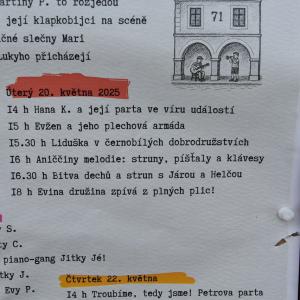 artiny P. to rozjedou
její klapkobijci na scéně
čné slečny Mari
ukyho přicházejí
71
Úterý 20. května 2025
14 h Hana K. a její parta ve víru událostí
15 h Evžen a jeho plechová armáda
15.30 h Liduška v černobílých dobrodružstvích
16 h Aniččiny melodie: struny, píšťaly a klávesy
16.30 h Bitva dechů a strun s Járou a Helčou
18 h Evina družina zpívá z plných plic!
y S.
y C.
piano-gang Jitky Jé!
tky J.
Evy P.
Čtvrtek 22. května
14 h Troubíme, tedy jsme! Petrova parta